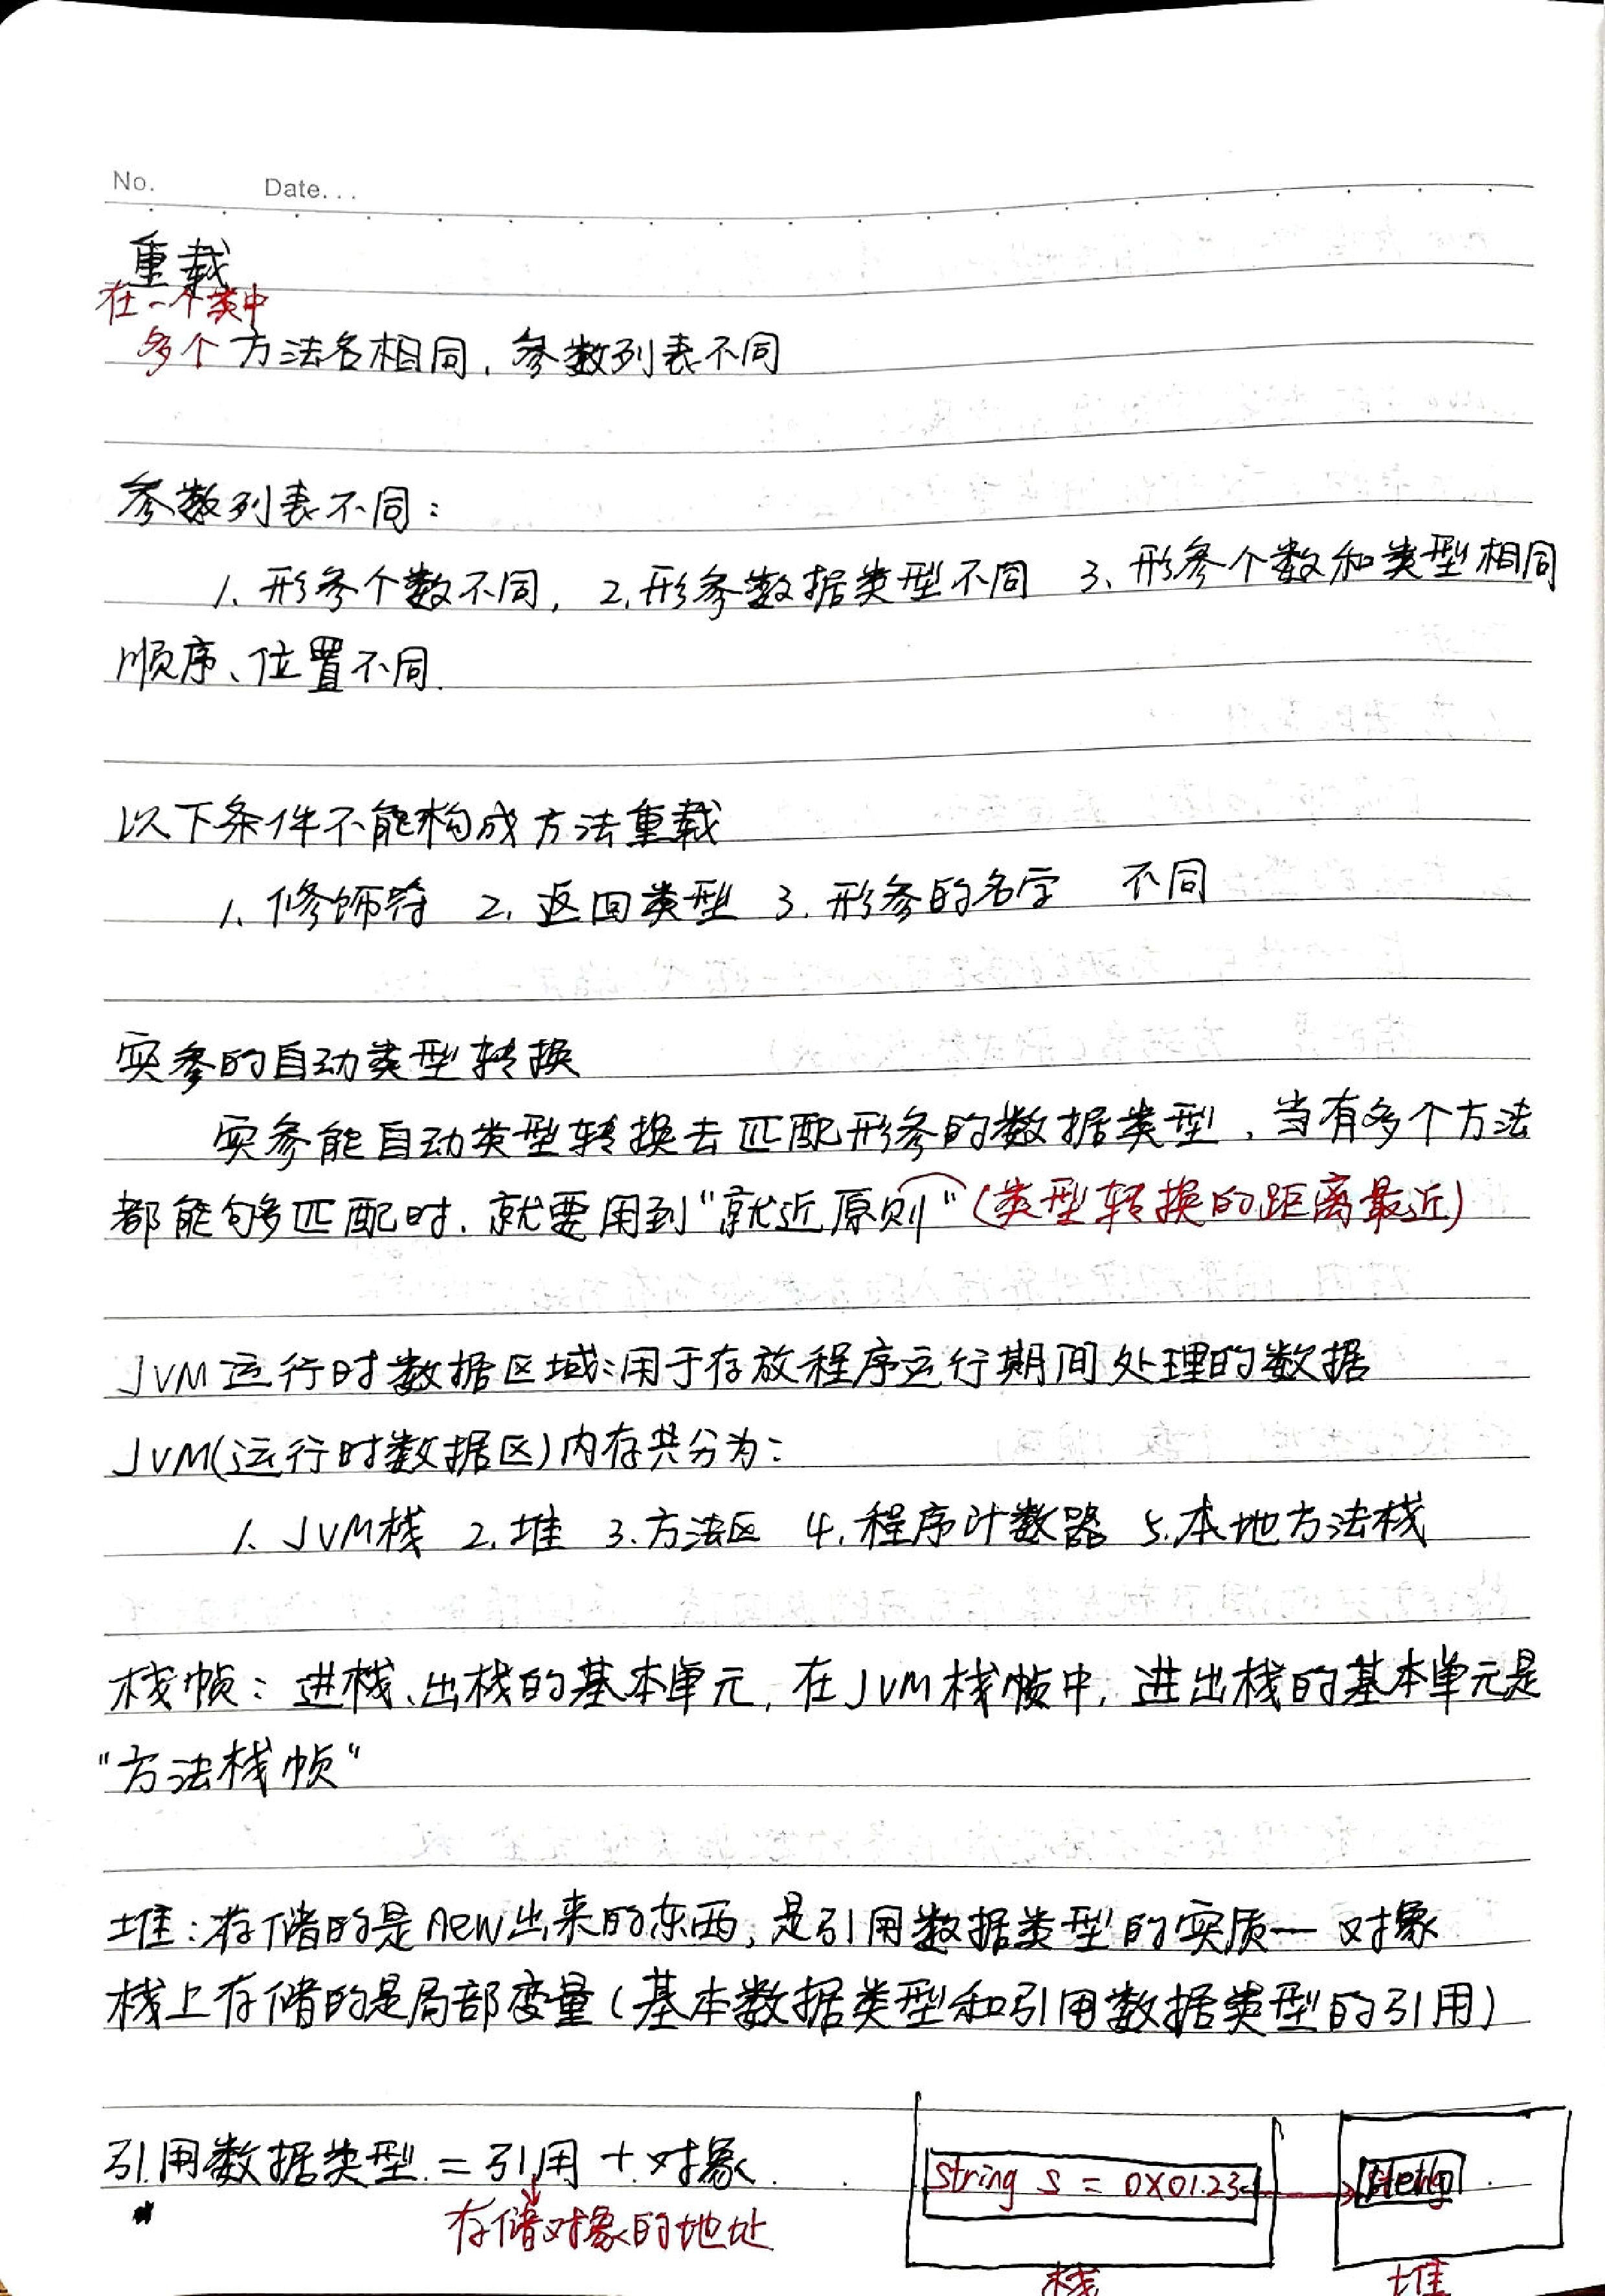 No. Date...
重载
在一个类中
多个方法名相同，参数列表不同
参数列表不同：
1、形参个数不同，2、形参数据类型不同 3、形参个数和类型相同
顺序、位置不同.
以下条件不能构成方法重载
1、修饰符 2、返回类型 3、形参的名字 不同
实参的自动类型转换
实参能自动类型转换去匹配形参的数据类型，当有多个方法
都能够匹配时，就要用到"就近原则"(类型转换的距离最近)
JVM运行时数据区域:用于存放程序运行期间处理的数据
JVM(运行时数据区)内存共分为:
1、JVM栈 2、堆 3.方法区 4、程序计数器 5.本地方法栈
栈帧：进栈、出栈的基本单元，在JVM栈帧中，进出栈的基本单元是
"方法栈帧"
堆：存储的是new出来的东西，是引用数据类型的实质一对象
栈上存储的是局部变量(基本数据类型和引用数据类型的引用)
引用数据类型 = 引用 + 对象
存储对象的地址
String s = 0X01234
栈
堆